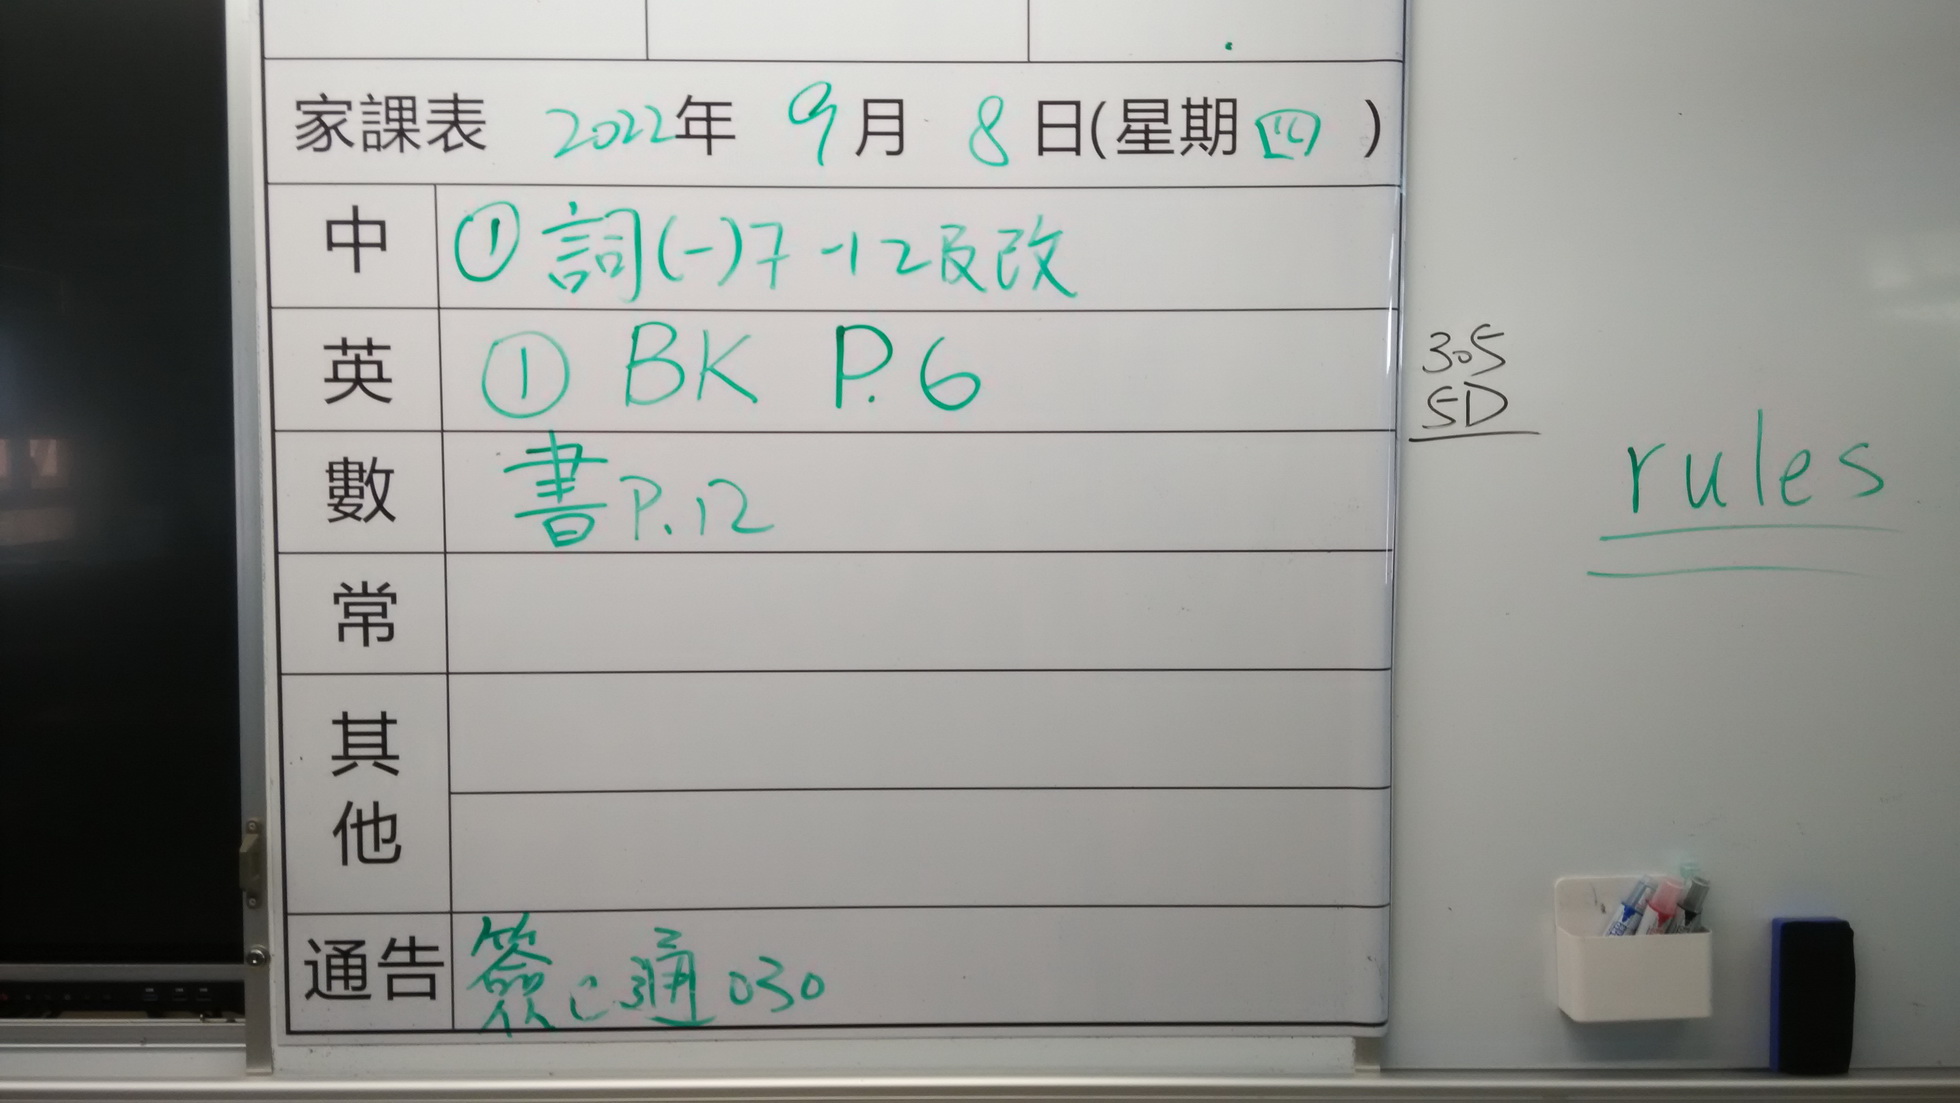 家課表 2022年 9月 8日(星期四)
中 ① 詞(一)7-12及改
英 ① BK P.6
數 書P.12
常
其他
通告 簽e通030
305
5D
rules